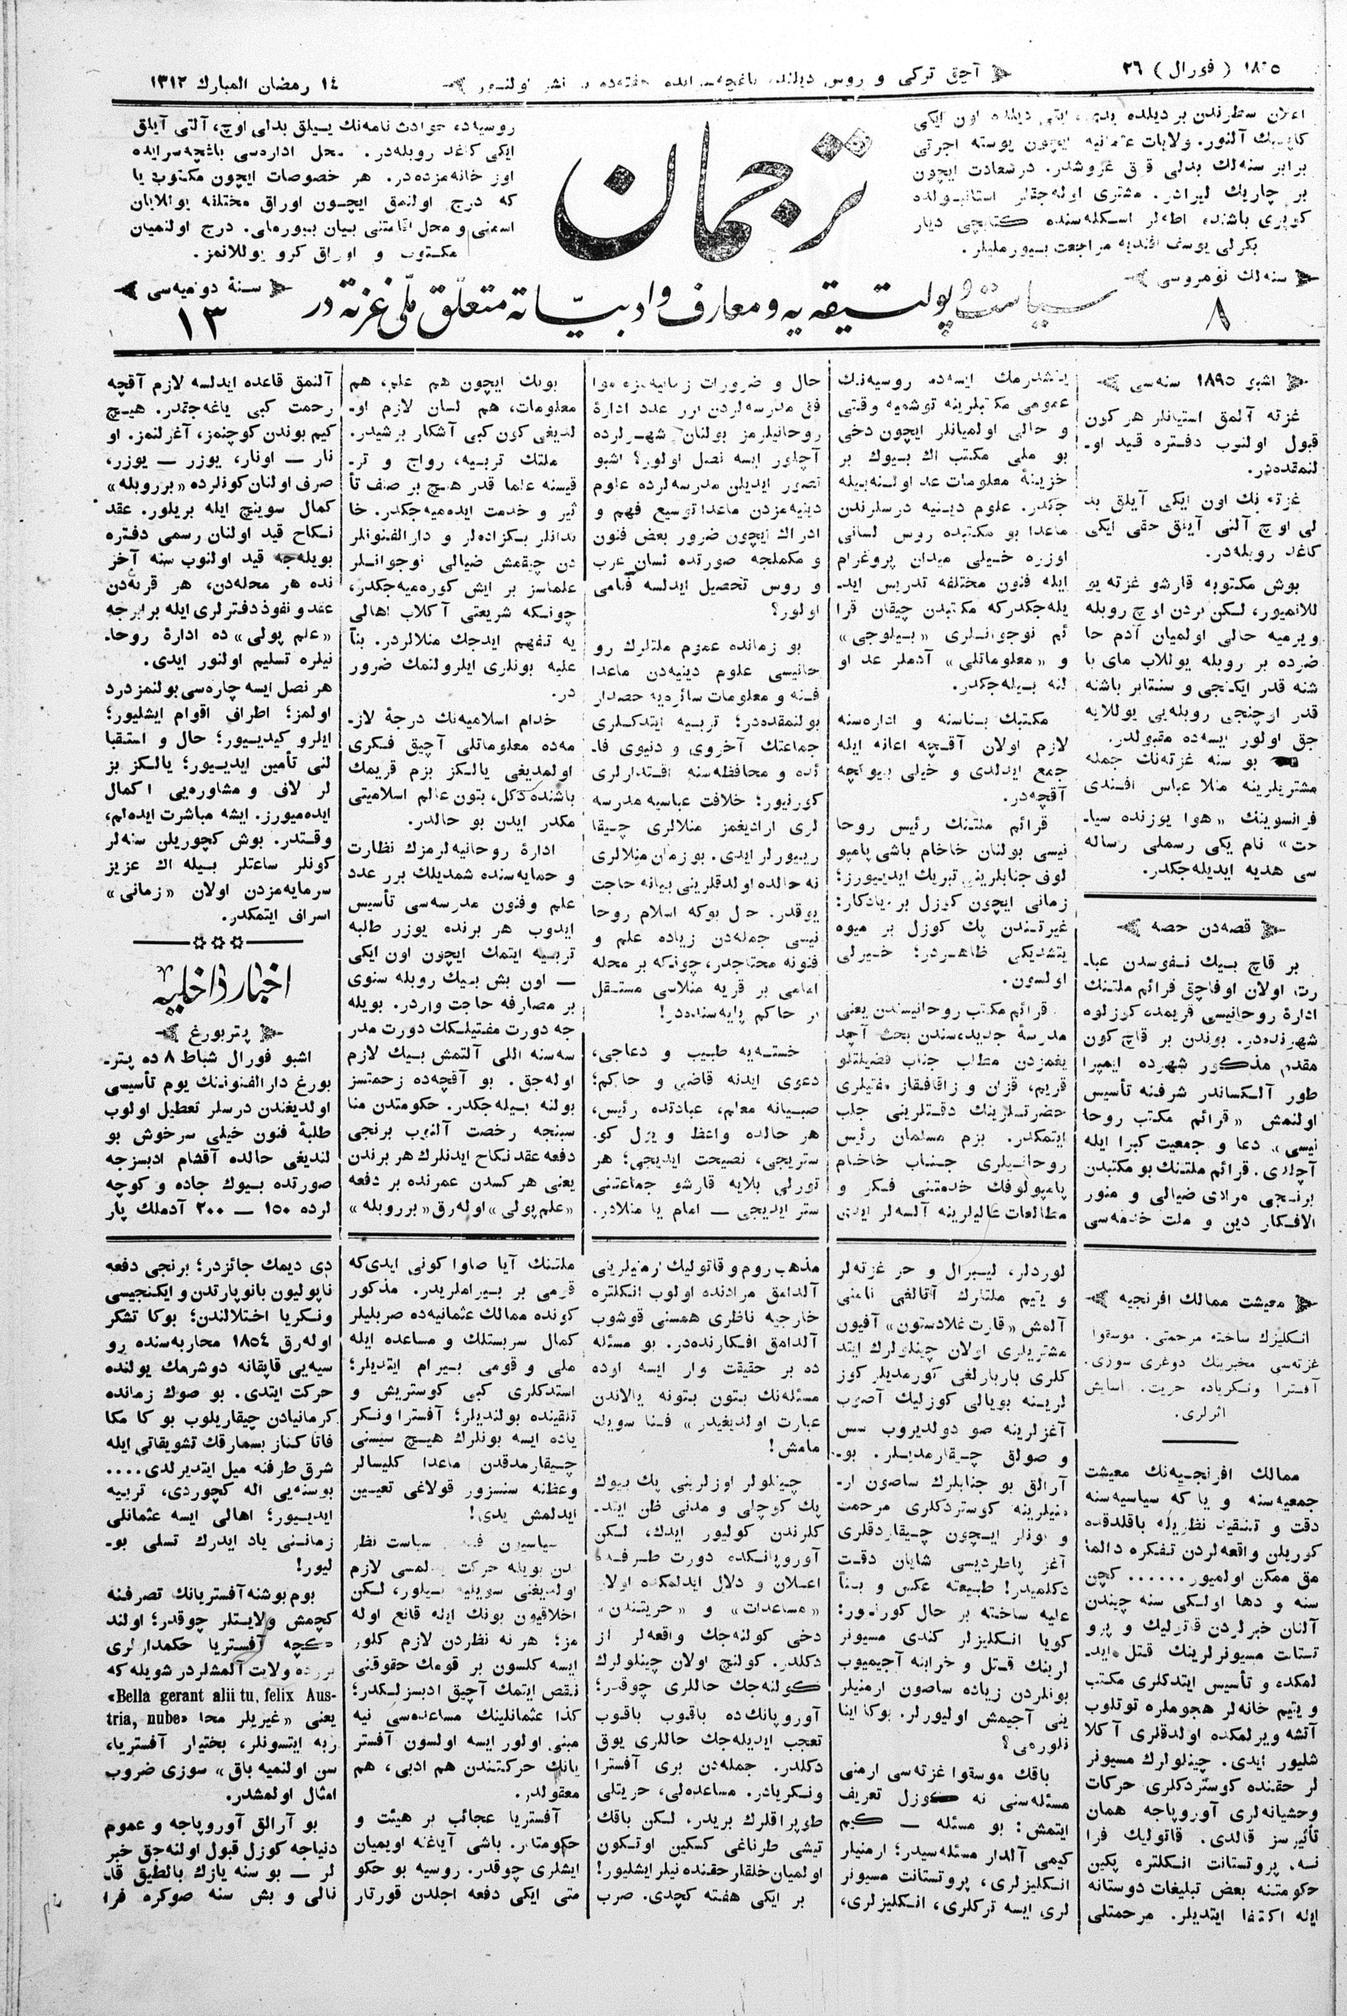 ١٨٩٥ ( فورال ) ٢٦
آچق تركى و روس ديلنده باغچه‌سرايده هفته‌ده بر نشر اولنور
١٤ رمضان المبارك ١٣١٢
اعلان سطرندن بر ديلده بدى، ايكى ديلده اون ايكى
كاپيك آلنور. ولايات عثمانيه ايچون پوسته اجرتى
برابر سنه‌لك بدلى قرق غروشدر. درسعادت ايچون
بر چاريك ليرادر. مشترى اوله‌جقلر استانبولده
كوپرى باشنده، اطه‌لر اسكله‌سنده كتابچى ديار
بكرلى يوسف افنديه مراجعت بيورمليلر.
سنه‌لك نومروسى
٨
ترجمان
سياست و پولتيقه‌يه و معارف و ادبيّاته متعلّق ملّى غزته‌در
روسيه‌ده حوادث نامه‌نك ييللق بدلى اوچ، آلتى آيلق
ايكى كاغد روبله‌در. محل اداره‌سى باغچه‌سرايده
اوز خانه‌مزده‌در. هر خصوصات ايچون مكتوب يا
كه درج اولنمق ايچون اوراق مختلفه يوللايان
اسمنى و محل اقامتنى بيان بيورملى. درج اولنميان
مكتوب و اوراق كرو يوللانمز.
سنۀ دوميه‌سى
١٣
اشبو ١٨٩٥ سنه‌سى
غزته آلمق استيانلر هر كون
قبول اولنوب دفتره قيد او-
لنمقده‌در.
غزته‌نك اون ايكى آيلق بد
لى اوچ آلتى آيلق حقى ايكى
كاغد روبله‌در.
بوش مكتوبه قارشو غزته يو
للانميور، لكن بردن اوچ روبله
ويرميه حالى اولميان آدم حا
ضرده بر روبله يوللاب ماى با
شنه قدر ايكنجى و سنتابر باشنه
قدر اوچنجى روبله‌يى يوللايه
جق اولور ايسه‌ده مقبولدر.
بو سنه غزته‌نك جمله
مشتريلرينه منلا عباس افندى
فرانسوينك «هوا يوزنده سيا-
حت» نام يكى رسملى رساله
سى هديه ايديله‌جكدر.
قصه‌دن حصه
بر قاچ بيك نفوسدن عبا-
رت اولان اوفاجق قرائم ملتنك
ادارۀ روحانيسى قريمده كوزلوه
شهرنده‌در. بوندن بر قاچ كون
مقدم مذكور شهرده ايمپرا
طور آلكساندر شرفنه تأسيس
اولنمش «قرائم مكتب روحا
نيسى» دعا و جمعيت كبرا ايله
آچلدى. قرائم ملتنك بو مكتبدن
برنجى مرادى ضيالى و منور
الافكار دين و ملت خدمه‌سى
يتشدرمك ايسه‌ده روسيه‌نك
عمومى مكتبلرينه توشميه وقتى
و حالى اولميانلر ايچون دخى
بو ملى مكتب اك بيوك بر
خزينۀ معلومات عد اولنه‌بيله
جكدر. علوم دينيه درسلرندن
ماعدا بو مكتبده روس لسانى
اوزره خيلى ميدان پروغرام
ايله فنون مختلفه تدريس ايد-
يله‌جكدركه مكتبدن چيقان قرا
ئم نوجوانلرى «بيلوجى»
و «معلوماتلى» آدملر عد او
لنه بيله‌جكدر.
مكتبك بناسنه و اداره‌سنه
لازم اولان آقچه اعانه ايله
جمع ايدلدى و خيلى بيوكچه
آقچه‌در.
قرائم ملتنك رئيس روحا
نيسى بولنان خاخام باشى پامپو
لوف جنابلرينى تبريك ايديورز؛
زمانى ايچون كوزل بر يادكار؛
غيرتندن پك كوزل بر ميوه
يتشديكى ظاهردر؛ خيرلى
اولسون.
قرائم مكتب روحانيسندن يعنى
مدرسۀ جديده‌سندن بحث آچد
يغمزدن مطلب جناب فضيلتلو
قريم، قزان و زاقافقاز مفتيلرى
حضرتلرينك دقتلرينى جلب
ايتمكدر. بزم مسلمان رئيس
روحانيلرى جناب خاخام
پامپولوفك خدمتنى فكر و
مطالعات عاليلرينه آلسه‌لر ايدى
حال و ضرورات زمانيه‌مزه موا
فق مدرسه‌لردن برر عدد ادارۀ
روحانيلرمز بولنان شهرلرده
آچلور ايسه نصل اولور؟ اشبو
تصور ايديلن مدرسه‌لرده علوم
دينيه‌مزدن ماعدا توسيع فهم و
ادراك ايچون ضرور بعض فنون
و مكملجه صورتده لسان عرب
و روس تحصيل ايدلسه قنامى
اولور؟
بو زمانده عموم ملتلرك رو
حانيسى علوم دينيه‌دن ماعدا
فنه و معلومات سائره‌يه حصدار
بولنمقده‌در؛ تربيه ايتدكلرى
جماعتك آخروى و دنيوى فا-
ئده و محافظه‌سنه اقتدارلرى
كورنيور؛ خلافت عباسيه مدرسه
لرى اراديغمز منلالرى چيقا
ريورلر ايدى. بو زمان منلالرى
نه حالده اولدقلرينى بيانه حاجت
يوقدر. حال بوكه اسلام روحا
نيسى جمله‌دن زياده علم و
فنونه محتاجدر، چونكه بر محله
امامى بر قريه منلاسى مستقل
بر حاكم پايه‌سنده‌در!
خسته‌يه طبيب و دعاجى،
دعوى ايدنه قاضى و حاكم؛
صبيانه معلم، عبادتده رئيس،
هر حالده واعظ و يول كو-
ستريجى، نصيحت ايديجى؛ هر
تورلى بلايه قارشو جماعتنى
ستر ايديجى — امام يا منلادر.
بونك ايچون هم علم، هم
معلومات، هم لسان لازم او-
لديغى كون كبى آشكار برشيدر.
ملتك تربيه، رواج و تر-
قيسنه علما قدر هيچ بر صنف تأ
ثير و خدمت ايده‌ميه‌جكدر. خا
ندانلر بكزاده‌لر و دارالفنونلر
دن چيقمش ضيالى نوجوانلر
علماسز بر ايش كوره‌ميه‌جكدر،
چونكه شريعتى آكلاب اهالى
يه تفهيم ايدجك منلالردر. بنأ
عليه بونلرى ايلرولتمك ضرور
در.
خدام اسلاميه‌نك درجۀ لاز-
مه‌ده معلوماتلى آچيق فكرى
اولمديغى يالكز بزم قريمك
باشنده دكل، بتون عالم اسلاميتى
مكدر ايدن بو حالدر.
ادارۀ روحانيه‌لرمزك نظارت
و حمايه‌سنده شمديلك برر عدد
علم و فنون مدرسه‌سى تأسيس
ايدوب هر برنده يوزر طلبه
تربيه ايتمك ايچون اون ايكى
— اون بش بيك روبله سنوى
بر مصارفه حاجت واردر. بويله
جه دورت مفتيلكك دورت مدر
سه‌سنه اللى آلتمش بيك لازم
اوله‌جق. بو آقچه‌ده زحمتسز
بولنه بيله‌جكدر. حكومتدن منا
سبنجه رخصت آلنوب برنجى
دفعه عقد نكاح ايدنلرك هر برندن
يعنى هر كسدن عمرنده بر دفعه
«علم پولى» اوله‌رق «بر روبله»
آلنمق قاعده ايدلسه لازم آقچه
رحمت كبى ياغه‌جقدر. هيچ
كيم بوندن كوچنمز، آغرلنمز. او
نار — اونار، يوزر — يوزر،
صرف اولنان كونلرده «بر روبله»
كمال سوينچ ايله بريلور. عقد
نكاح قيد اولنان رسمى دفتره
بويله‌جه قيد اولنوب سنه آخر
نده هر محله‌دن، هر قريه‌دن
عقد و نفوذ دفترلرى ايله برابرجه
«علم پولى» ده ادارۀ روحا-
نيلره تسليم اولنور ايدى.
هر نصل ايسه چاره‌سى بولنمز درد
اولمز؛ اطراف اقوام ايشليور؛
ايلرو كيديور؛ حال و استقبا
لنى تأمين ايديور؛ يالكز بز
لر لاف و مشاوره‌يى اكمال
ايده‌ميورز. ايشه مباشرت ايده‌لم،
وقتدر. بوش كچوريلن سنه‌لر
كونلر ساعتلر بيله اك عزيز
سرمايه‌مزدن اولان «زمانى»
اسراف ايتمكدر.
اخبار داخليه
پتربورغ
اشبو فورال شباط ٨ ده پتر-
بورغ دارالفنوننك يوم تأسيسى
اولديغندن درسلر تعطيل اولوب
طلبۀ فنون خيلى سرخوش بو
لنديغى حالده آقشام ادبسزجه
صورتده بيوك جاده و كوچه
لرده ١٥٠ — ٢٠٠ آدملك پار
معيشت ممالك افرنجيه
انكليزك ساخته مرحمتى. موسقوا
غزته‌سى مخبرينك دوغرى سوزى.
آفسترا ونكرياده حريت. اسايش
اثرلرى.
ممالك افرنجيه‌نك معيشت
جمعيه‌سنه و يا كه سياسيه‌سنه
دقت و تنقيد نظريله باقلدقده
كوريلن واقعه‌لردن تفكره دالما
مق ممكن اولميور...... كچن
سنه و دها اولكى سنه چيندن
آلنان خبرلردن قاتوليك و پرو
تستانت مسيونرلرينك قتل ايد-
لمكده و تأسيس ايتدكلرى مكتب
و يتيم خانه‌لر هجوملره توتلوب
آتشه ويرلمكده اولدقلرى آكلا
شليور ايدى. چينلولرك مسيونر
لر حقنده كوستردكلرى حركات
وحشيانه‌لرى آوروپاجه همان
تأثيرسز قالدى. قاتوليك فرا
نسه، پروتستانت انكلتره پكين
حكومتنه بعض تبليغات دوستانه
ايله اكتفا ايتديلر. مرحمتلى
لوردلر، ليبرال و حر غزته‌لر
و يتيم ملتلرك آتالغى نامنى
آلمش «قارت غلادستون» آفيون
مشتريلرى اولان چينلولرك ايتد
كلرى باربارلغى كورمديلر كوز
لرينه بويالى كوزليك آصوب
آغزلرينه صو دولديروب سس
و صولق چيقارمديلر. بو-
آرالق بو جنابلرك ساصون ار-
منيلرينه كوستردكلرى مرحمت
و بونلر ايچون چيقاردقلرى
آغز پاطرديسى شايان دقت
دكلميدر! طبيعته عكس و بنأ
عليه ساخته بر حال كورنور:
كويا انكليزلر كندى مسيونر
لرينك قتل و خرابنه آجيميوب
بونلردن زياده ساصون ارمنيلر
ينى آجيمش اوليورلر. بوكا اينا
نلورمى؟
باقك موسقوا غزته‌سى ارمنى
مسئله‌سنى نه كوزل تعريف
ايتمش: بو مسئله — كيم
كيمى آلدار مسئله‌سيدر؛ ارمنيلر
انكليزلرى، پروتستانت مسيونر
لرى ايسه تركلرى، انكليزلرى،
مذهب روم و قاتوليك ارمنيلرينى
آلدامق مرادنده اولوب انكلتره
خارجيه ناظرى همسنى قوشوب
آلدامق افكارنده‌در. بو مسئله
ده بر حقيقت وار ايسه اوده
مسئله‌نك بتون بتونه يالاندن
عبارت اولديغيدر» فنا سويله
مامش!
چينلولر اوزلرينى پك بيوك
پك كوچلى و مدنى ظن ايتد-
كلرندن كوليور ايدك، لكن
آوروپانكده دورت طرفه
اعلان و دلال ايدلمكده اولان
«مساعدات» و «حريتندن»
دخى كولنه‌جك واقعه‌لر از
دكلدر. كولنچ اولان چينلولرك
كولنه‌جك حاللرى چوقدر؛
آوروپانك‌ده باقوب باقوب
تعجب ايديله‌جك حاللرى يوق
دكلدر. جمله‌دن برى آفسترا
ونكريادر. مساعده‌لى، حريتلى
طوپراقلرك بريدر. لكن باقك
تيشى طرناغى كسكين اوتكون
اولميان خلقلر حقنده نيلر ايشليور!
بر ايكى هفته كچدى. صرب
ملتنك آيا صاوا كونى ايدى كه
قومى بر بيراملريدر. مذكور
كونده ممالك عثمانيه‌ده صربليلر
كمال سربستلك و مساعده ايله
ملى و قومى بيرام ايتديلر؛
استدكلرى كبى كوستريش و
تلقينده بولنديلر؛ آفستراونكر
ياده ايسه بونلرك هيچ سيسنى
چيقارمدقدن ماعدا كليسالر
وعظنه سنسزور قولاغى تعيين
ايدلمش يدى!
سياسيون سياست نظر
ندن بويله حركت ايتلمسى لازم
اولديغنى سويليه بيلور، لكن
اخلاقيون بونك ايله قانع اوله
مز؛ هر نه نظردن لازم كلور
ايسه كلسون بر قومك حقوقنى
نقص ايتمك آچيق ادبسزلكدر؛
كذا عثمانلينك مساعده‌سى نيه
مبنى اولور ايسه اولسون آفستر
يانك حركتندن هم ادبى، هم
معقولدر.
آفستريا عجائب بر هيئت و
حكومتدر. باشى آياغنه اويميان
ايشلرى چوقدر. روسيه بو حكو
متى ايكى دفعه اجلدن قورتار
دى ديمك جائزدر؛ برنجى دفعه
ناپوليون بانوپارتدن و ايكنجيسى
ونكريا اختلالندن؛ بوكا تشكر
اوله‌رق ١٨٥٤ محاربه‌سنده رو
سيه‌يى قاپقانه دوشرمك يولنده
حركت ايتدى. بو صوك زمانده
كرمانيادن چيقاريلوب بوكا مكا
فاتا كناز بسمارقك تشويقاتى ايله
شرق طرفنه ميل ايتديرلدى....
بوسنه‌يى اله كچوردى، تربيه
ايديور؛ اهالى ايسه عثمانلى
زمانـنى ياد ايدرك تسلى بو-
ليور!
بوم بوشنه آفستريانك تصرفنه
كچمش ولايتلر چوقدر؛ اولند
كچه آفستريا حكمدارلرى
برر ده ولايت آلمشلردر شويله كه
«Bella gerant alii tu, felix Aus-
tria, nube» يعنى «غيريلر محا
ربه ايتسونلر، بختيار آفستريا،
سن اولنميه باق» سوزى ضروب
امثال اولمشدر.
بو آرالق آوروپاجه و عموم
دنياجه كوزل قبول اولنه‌جق خبر
لر — بو سنه يازك بالطيق قا-
نالى و بش سنه صوكره فرا